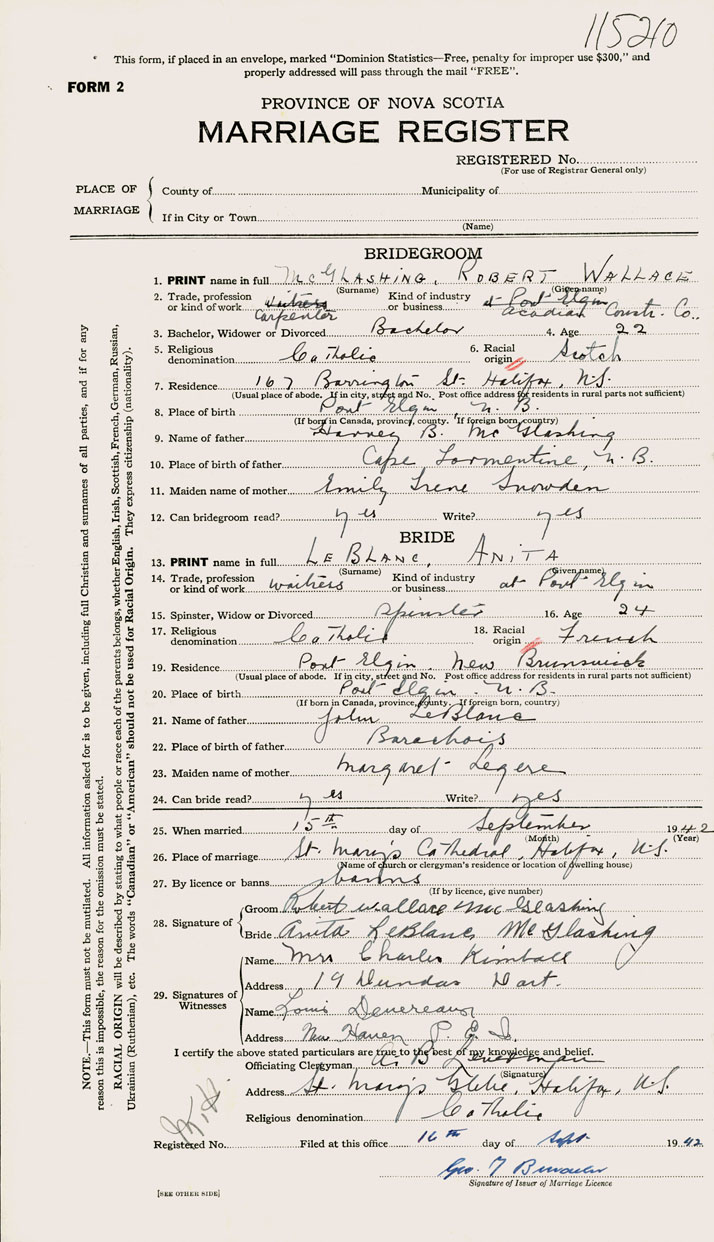 11520
This form, if placed in an envelope, marked "Dominion Statistics—Free, penalty for improper use $300," and
properly addressed will pass through the mail "FREE".
FORM 2
PROVINCE OF NOVA SCOTIA
MARRIAGE REGISTER
REGISTERED No.
(For use of Registrar General only)
PLACE OF MARRIAGE
County of Municipality of
If in City or Town
(Name)
BRIDEGROOM
1. PRINT name in full McGLASHING, ROBERT WALLACE
(Surname) (Given name)
2. Trade, profession or kind of work waitress Carpenter Kind of industry or business at Port Elgin Acadian Constr. Co.
3. Bachelor, Widower or Divorced Bachelor 4. Age 22
5. Religious denomination Catholic 6. Racial origin Scotch
7. Residence 167 Barrington St. Halifax, N.S.
(Usual place of abode. If in city, street and No. Post office address for residents in rural parts not sufficient)
8. Place of birth Port Elgin, N.B.
(If born in Canada, province, county. If foreign born, country)
9. Name of father Harvey B. McGlashing
10. Place of birth of father Cape Tormentine, N.B.
11. Maiden name of mother Emily Irene Snowden
12. Can bridegroom read? yes Write? yes
BRIDE
13. PRINT name in full LEBLANC, ANITA
(Surname) (Given name)
14. Trade, profession or kind of work waitress Kind of industry or business at Port Elgin
15. Spinster, Widow or Divorced Spinster 16. Age 24
17. Religious denomination Catholic 18. Racial origin French
19. Residence Port Elgin, New Brunswick
(Usual place of abode. If in city, street and No. Post office address for residents in rural parts not sufficient)
20. Place of birth Port Elgin, N.B.
(If born in Canada, province, county. If foreign born, country)
21. Name of father John LeBlanc
22. Place of birth of father Barachois
23. Maiden name of mother Margaret Legere
24. Can bride read? yes Write? yes
25. When married 15th day of September 1942
(Month) (Year)
26. Place of marriage St. Mary's Cathedral, Halifax, N.S.
(Name of church or clergyman's residence or location of dwelling house)
27. By licence or banns banns
(If by licence, give number)
28. Signature of
Groom Robert Wallace McGlashing
Bride Anita LeBlanc McGlashing
29. Signatures of Witnesses
Name Mrs Charles Kimball
Address 19 Dundas Dart.
Name Louis Devereaux
Address New Haven P.E.I.
I certify the above stated particulars are true to the best of my knowledge and belief.
Officiating Clergyman A. B.
(Signature)
Address St. Mary's Glebe, Halifax, N.S.
Religious denomination Catholic
Registered No. Filed at this office 16th day of Sept 1942
Geo. T
Signature of Issuer of Marriage Licence
[SEE OTHER SIDE]
NOTE.—This form must not be mutilated. All information asked for is to be given, including full Christian and surnames of all parties, and if for any
reason this is impossible, the reason for the omission must be stated.
RACIAL ORIGIN will be described by stating to what people or race each of the parents belongs, whether English, Irish, Scottish, French, German, Russian,
Ukrainian (Ruthenian), etc. The words "Canadian" or "American" should not be used for Racial Origin. They express citizenship (nationality).